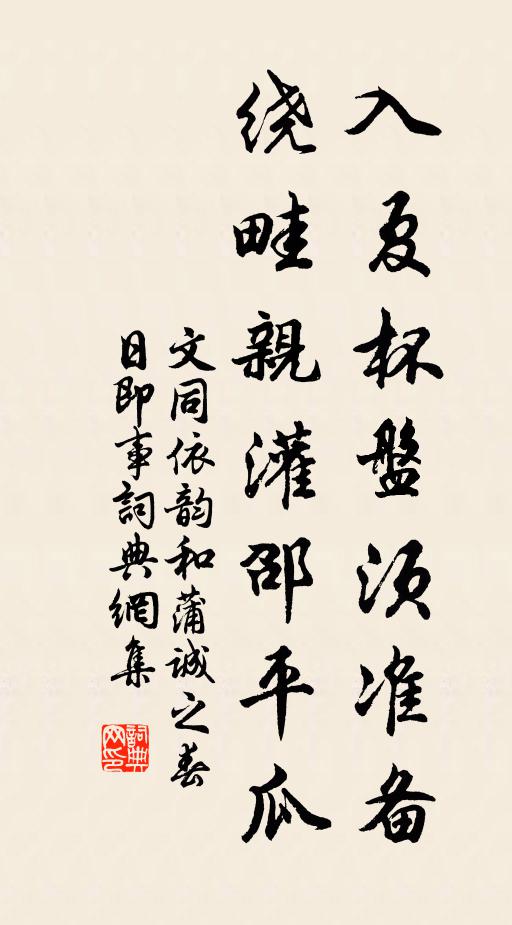 入夏杯盤须准备
绕畦親灌邵平瓜
文同依韵和蒲诚之春
日即事詞典網集
詞典
网印